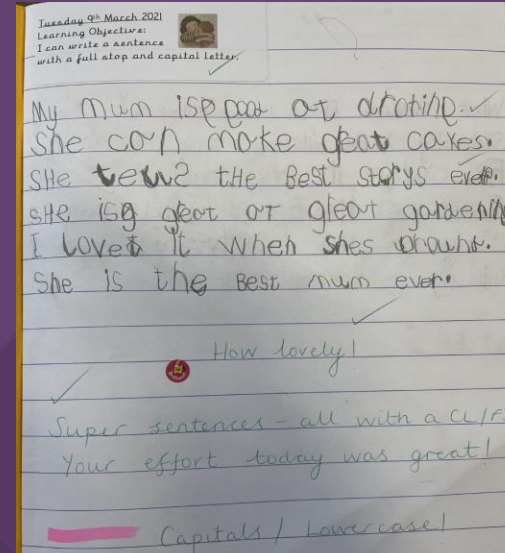 Tuesday 9th March 2021
Learning Objective:
I can write a sentence
with a full stop and capital letter.
My mum is good at
She can make great caxes.
SHe tells tHe Best storys ever.
SHe is great aT great gardenin
I Love it when shes around.
She is the Best mum ever.
How lovely!
Super sentences - all with a CL/F
Your effort today was great!
Capitals / Lowercase!